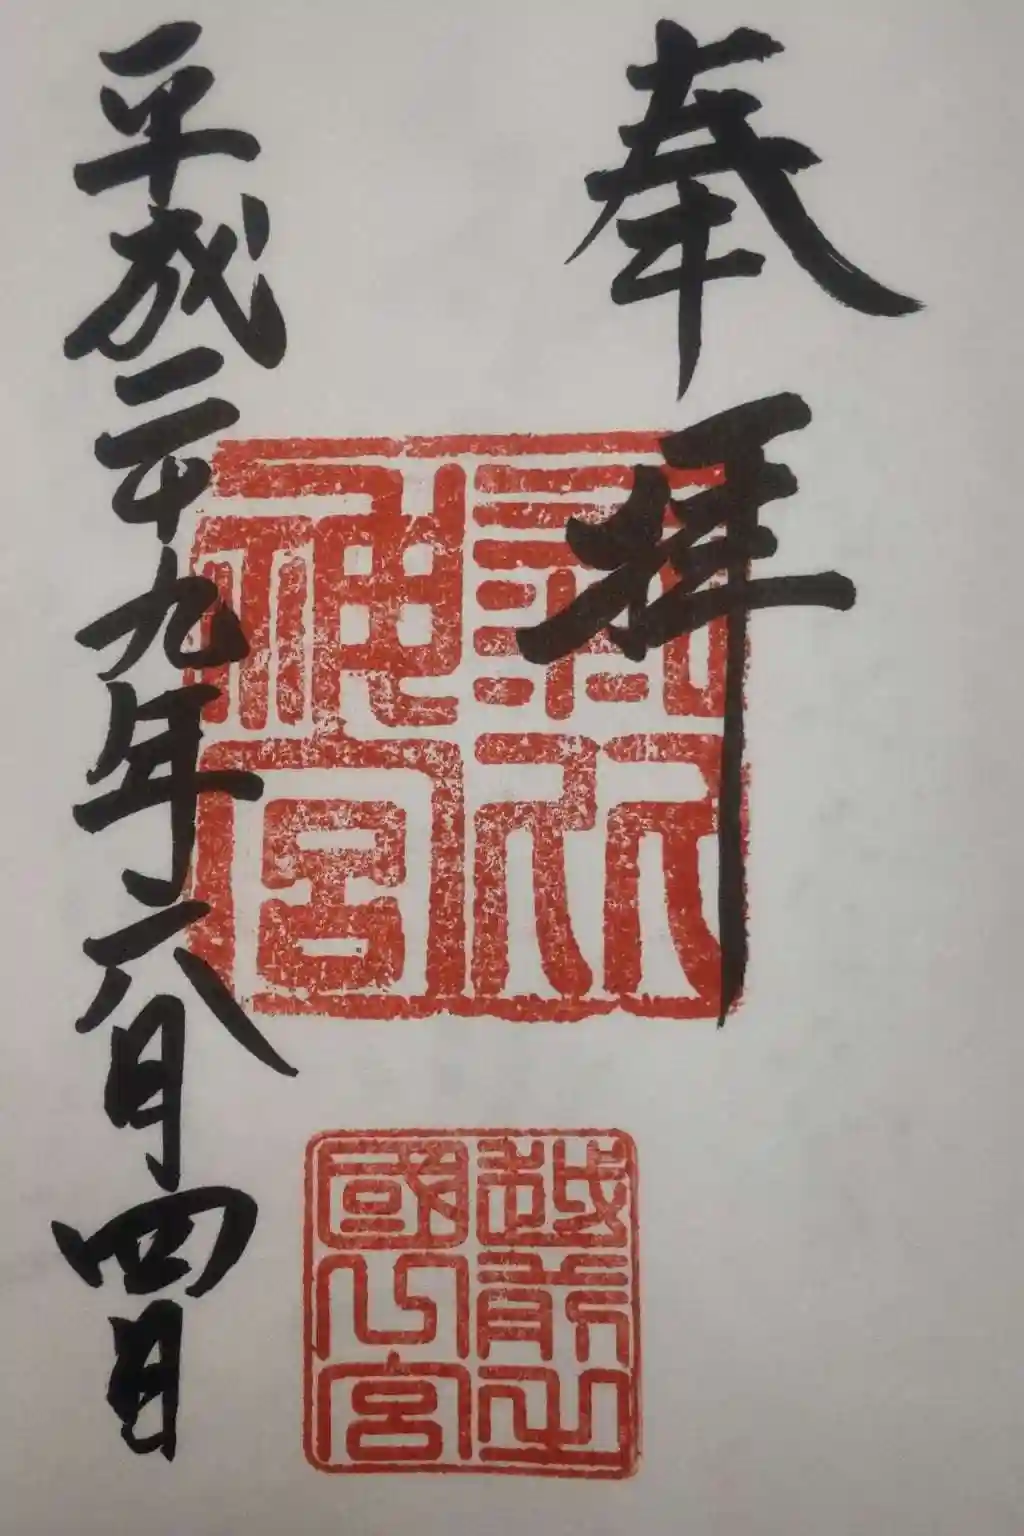 奉拝
氣比神宮
越前之
國一宮
平成二十九年六月四日